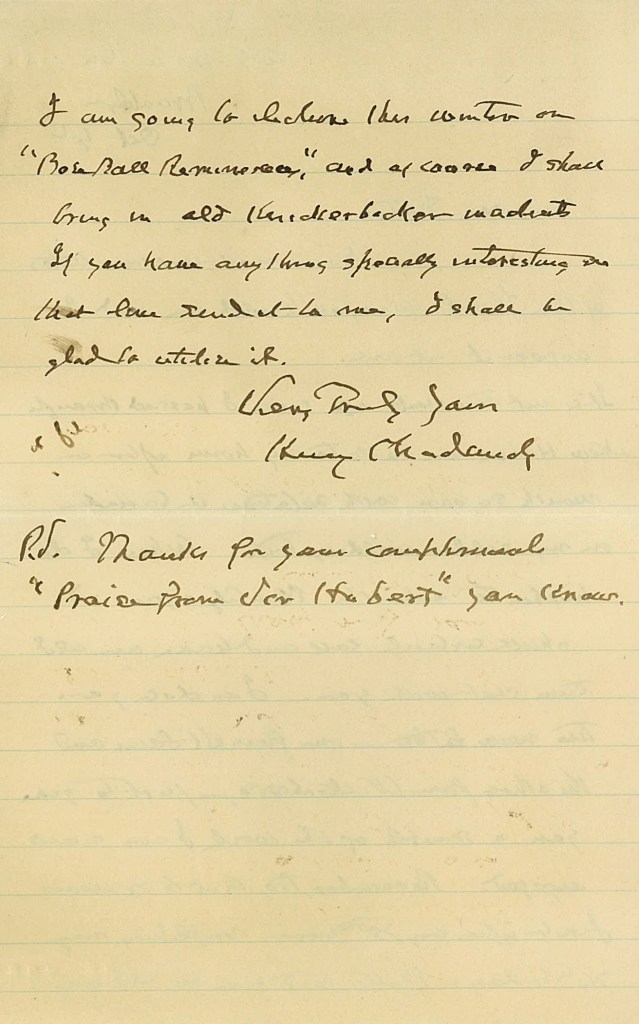 I am going to lecture this winter on
"Base Ball Reminiscences," and of course I shall
bring in old Knickerbocker incidents
If you have anything specially interesting in
that line send it to me, I shall be
glad to utilize it.
Very Truly Yours
Henry Chadwick
P.S. Thanks for your compliments
"Praise from Sir Hubert" you know.